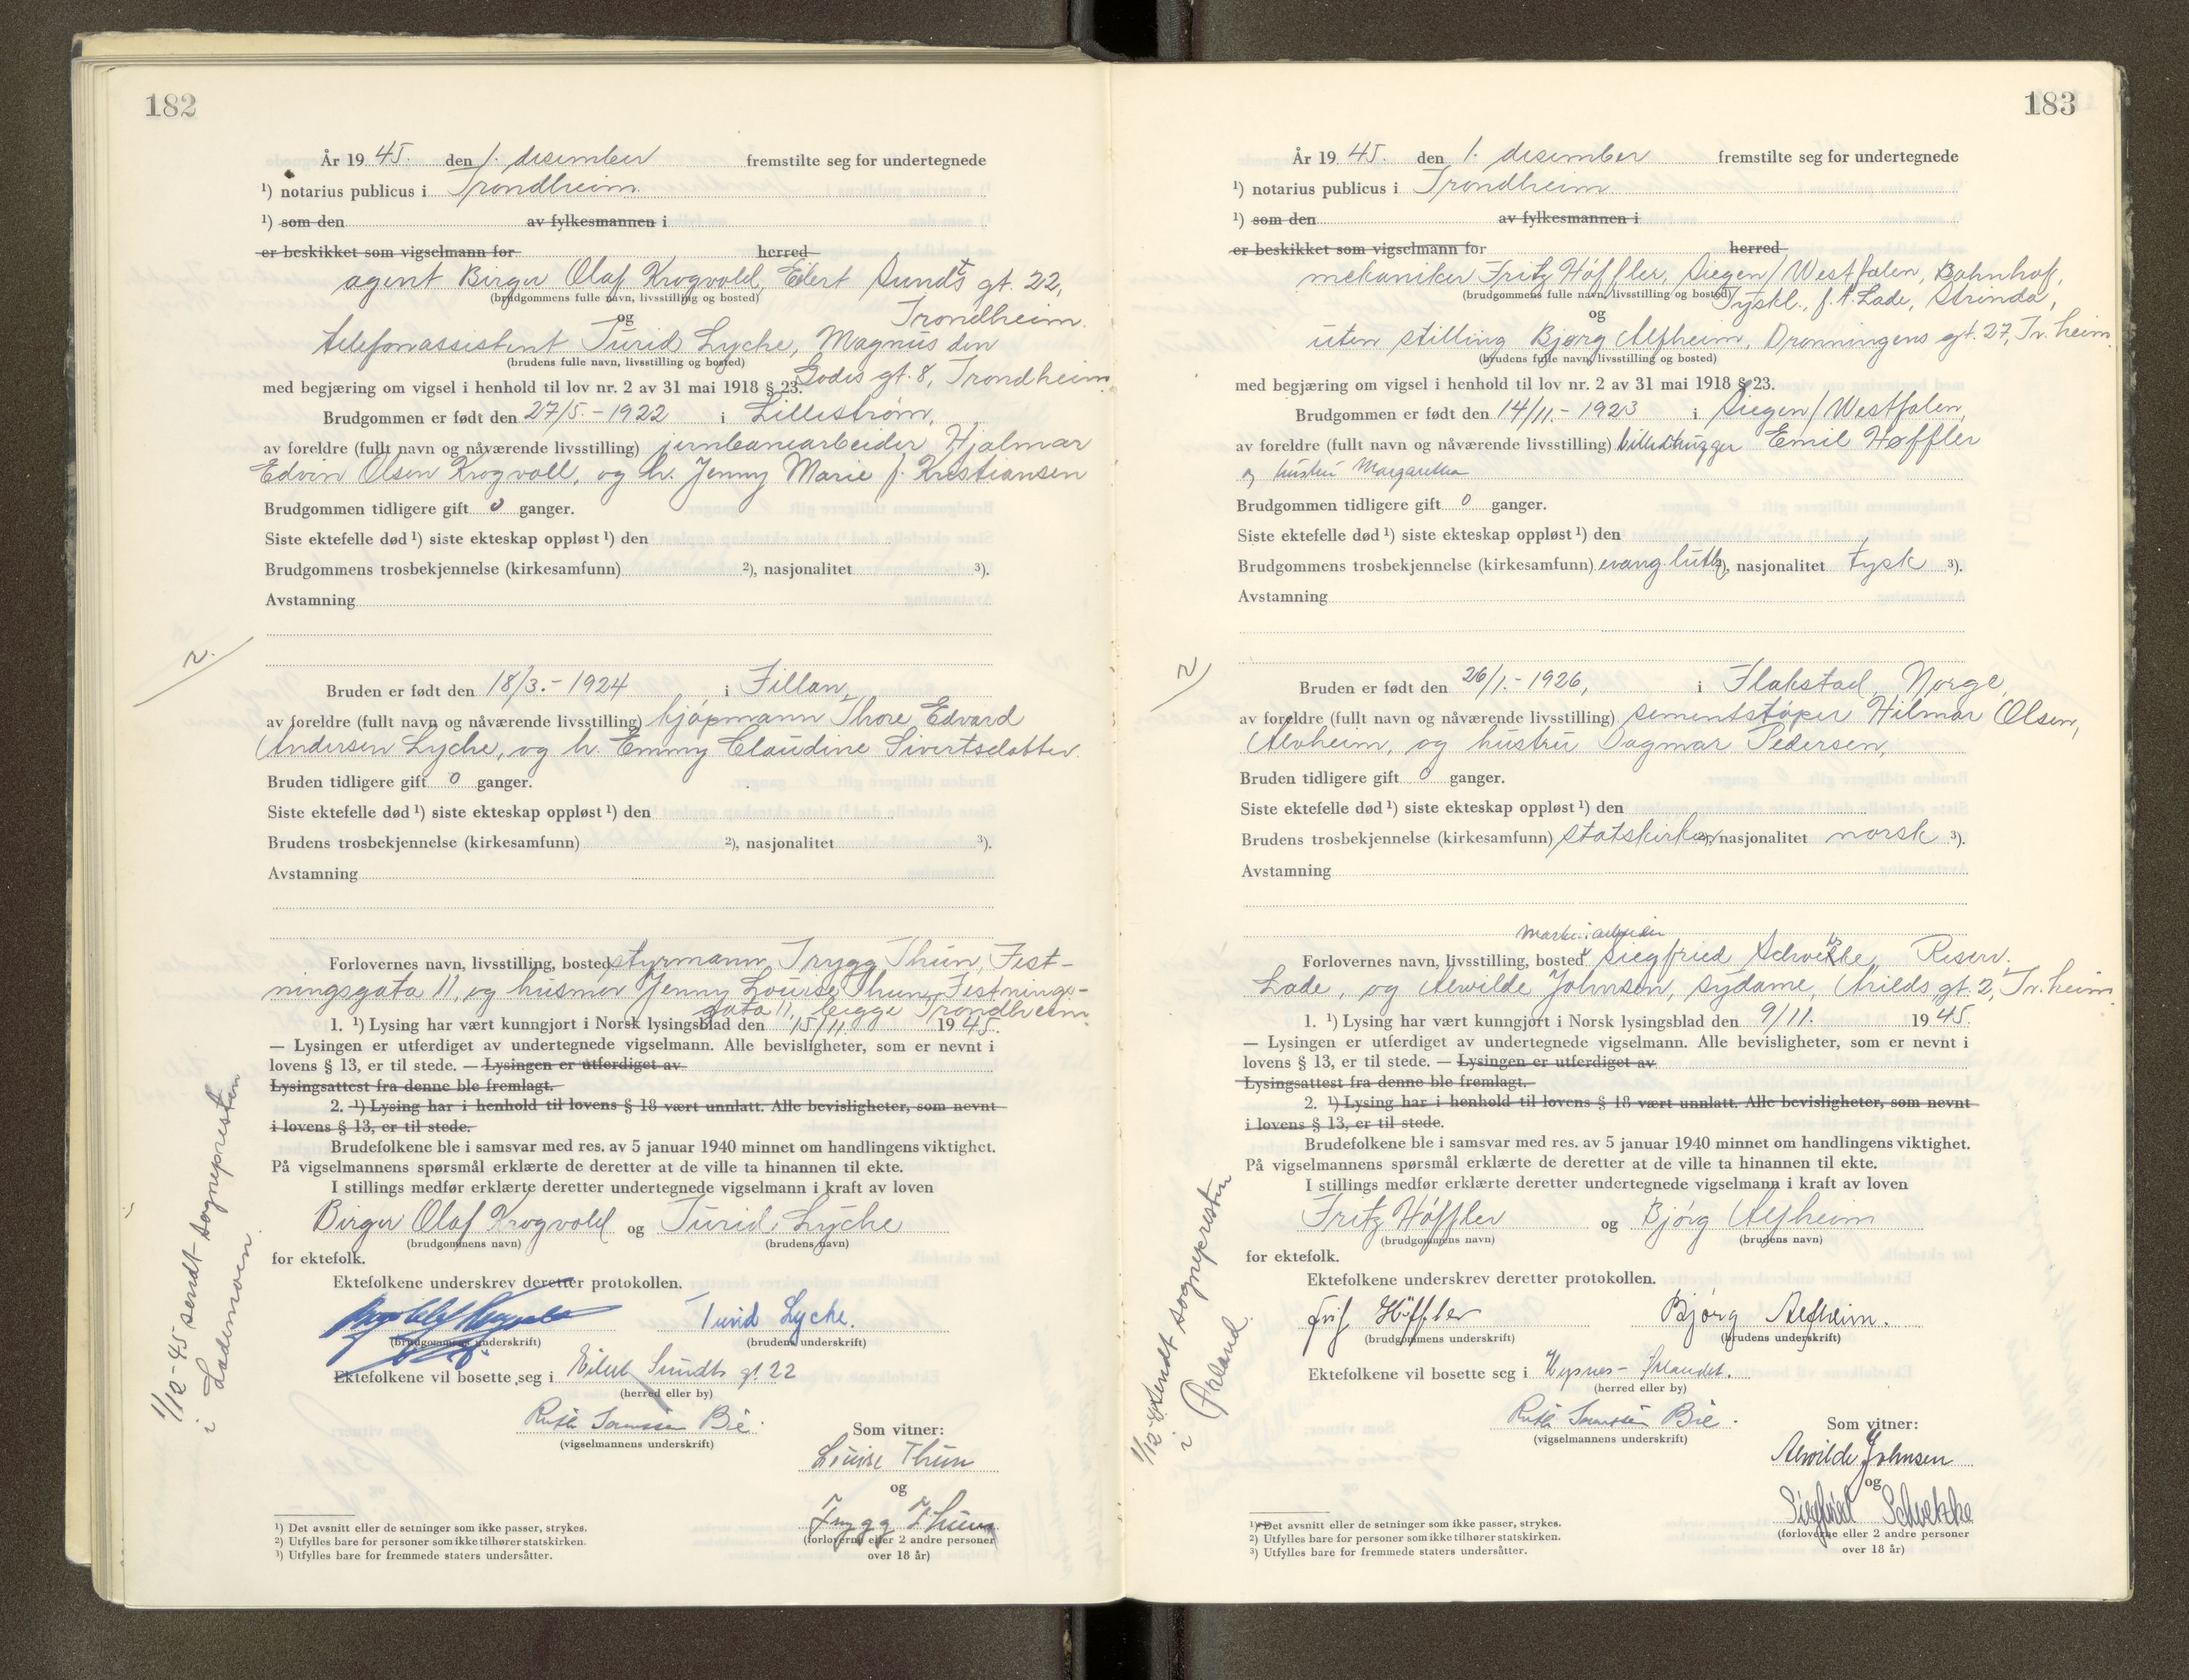 182
År 19 45. den 1. desember fremstilte seg for undertegnede
¹) notarius publicus i Trondheim.
¹) som den av fylkesmannen i
er beskikket som vigselmann for herred
agent Birger Olaf Krogvold, Eilert Sundts gt. 22,
(brudgommens fulle navn, livsstilling og bosted)
og Trondheim.
telefonassistent Turid Lyche, Magnus den
(brudens fulle navn, livsstilling og bosted)
med begjæring om vigsel i henhold til lov nr. 2 av 31 mai 1918 § 23. Godes gt. 8, Trondheim.
Brudgommen er født den 27/5. - 1922 i Lillestrøm,
av foreldre (fullt navn og nåværende livsstilling) jernbanearbeider Hjalmar
Edvin Olsen Krogvoll, og h. Jenny Marie f. Kristiansen
Brudgommen tidligere gift 0 ganger.
Siste ektefelle død ¹) siste ekteskap oppløst ¹) den
Brudgommens trosbekjennelse (kirkesamfunn) ²), nasjonalitet ³).
Avstamning
2.
Bruden er født den 18/3. - 1924 i Fillan,
av foreldre (fullt navn og nåværende livsstilling) kjøpmann Thore Edvard
Andersen Lyche, og h. Emmy Claudine Sivertsdatter.
Bruden tidligere gift 0 ganger.
Siste ektefelle død ¹) siste ekteskap oppløst ¹) den
Brudens trosbekjennelse (kirkesamfunn) ²), nasjonalitet ³).
Avstamning
Forlovernes navn, livsstilling, bosted styrmann, Trygg Thun, Fest-
ningsgata 11, og husmor Jenny Louise Thun, Festnings-
gata 11, begge Trondheim.
1. ¹) Lysing har vært kunngjort i Norsk lysingsblad den 15/11. 19 45.
— Lysingen er utferdiget av undertegnede vigselmann. Alle bevisligheter, som er nevnt i
lovens § 13, er til stede. — Lysingen er utferdiget av
Lysingsattest fra denne ble fremlagt.
2. ¹) Lysing har i henhold til lovens § 18 vært unnlatt. Alle bevisligheter, som nevnt
i lovens § 13, er til stede.
Brudefolkene ble i samsvar med res. av 5 januar 1940 minnet om handlingens viktighet.
På vigselmannens spørsmål erklærte de deretter at de ville ta hinannen til ekte.
I stillings medfør erklærte deretter undertegnede vigselmann i kraft av loven
Birger Olaf Krogvold og Turid Lyche
(brudgommens navn) (brudens navn)
for ektefolk.
Ektefolkene underskrev deretter protokollen.
Turid Lyche.
(brudgommens underskrift) (brudens underskrift)
Ektefolkene vil bosette seg i Eilert Sundts gt 22
(herred eller by)
Ruth Sommer Bie.
(vigselmannens underskrift)
Som vitner:
Louise Thun
og
Trygg Thun
(forloverne eller 2 andre personer
over 18 år)
1/12-45 sendt sognepresten
i Lademoen.
¹) Det avsnitt eller de setninger som ikke passer, strykes.
²) Utfylles bare for personer som ikke tilhører statskirken.
³) Utfylles bare for fremmede staters undersåtter.
183
År 19 45. den 1. desember fremstilte seg for undertegnede
¹) notarius publicus i Trondheim
¹) som den av fylkesmannen i
er beskikket som vigselmann for herred
mekaniker Fritz Höffler, Siegen/Westfalen, Bahnhof,
(brudgommens fulle navn, livsstilling og bosted) Tyskl., f.t. Lade, Strinda,
og
uten stilling Bjørg Alfheim, Dronningens gt. 27, Tr.heim.
(brudens fulle navn, livsstilling og bosted)
med begjæring om vigsel i henhold til lov nr. 2 av 31 mai 1918 § 23.
Brudgommen er født den 14/11. - 1923 i Siegen/Westfalen,
av foreldre (fullt navn og nåværende livsstilling) Emil Høffler
og hustru Margaretha
Brudgommen tidligere gift 0 ganger.
Siste ektefelle død ¹) siste ekteskap oppløst ¹) den
Brudgommens trosbekjennelse (kirkesamfunn) evang. luth. ²), nasjonalitet tysk ³).
Avstamning
2
Bruden er født den 26/1. - 1926, i Flakstad, Norge,
av foreldre (fullt navn og nåværende livsstilling) sementstøper Hilmar Olsen,
Alvheim, og hustru Dagmar Pedersen,
Bruden tidligere gift 0 ganger.
Siste ektefelle død ¹) siste ekteskap oppløst ¹) den
Brudens trosbekjennelse (kirkesamfunn) statskirken ²), nasjonalitet norsk ³).
Avstamning
Forlovernes navn, livsstilling, bosted Siegfried Schwetzke, Reserv.
Lade, og Alvilde Johnsen, sydame, Arilds gt. 2, Tr.heim.
1. ¹) Lysing har vært kunngjort i Norsk lysingsblad den 9/11. 19 45.
— Lysingen er utferdiget av undertegnede vigselmann. Alle bevisligheter, som er nevnt i
lovens § 13, er til stede. — Lysingen er utferdiget av
Lysingsattest fra denne ble fremlagt.
2. ¹) Lysing har i henhold til lovens § 18 vært unnlatt. Alle bevisligheter, som nevnt
i lovens § 13, er til stede.
Brudefolkene ble i samsvar med res. av 5 januar 1940 minnet om handlingens viktighet.
På vigselmannens spørsmål erklærte de deretter at de ville ta hinannen til ekte.
I stillings medfør erklærte deretter undertegnede vigselmann i kraft av loven
Fritz Höffler og Bjørg Alfheim
(brudgommens navn) (brudens navn)
for ektefolk.
Ektefolkene underskrev deretter protokollen.
Fritz Höffler Bjørg Alfheim.
(brudgommens underskrift) (brudens underskrift)
Ektefolkene vil bosette seg i
(herred eller by)
Ruth Sommer Bie.
(vigselmannens underskrift)
Som vitner:
Alvilde Johnsen
og
Siegfried
(forloverne eller 2 andre personer
over 18 år)
1/12-45 sendt sognepresten
i
¹) Det avsnitt eller de setninger som ikke passer, strykes.
²) Utfylles bare for personer som ikke tilhører statskirken.
³) Utfylles bare for fremmede staters undersåtter.